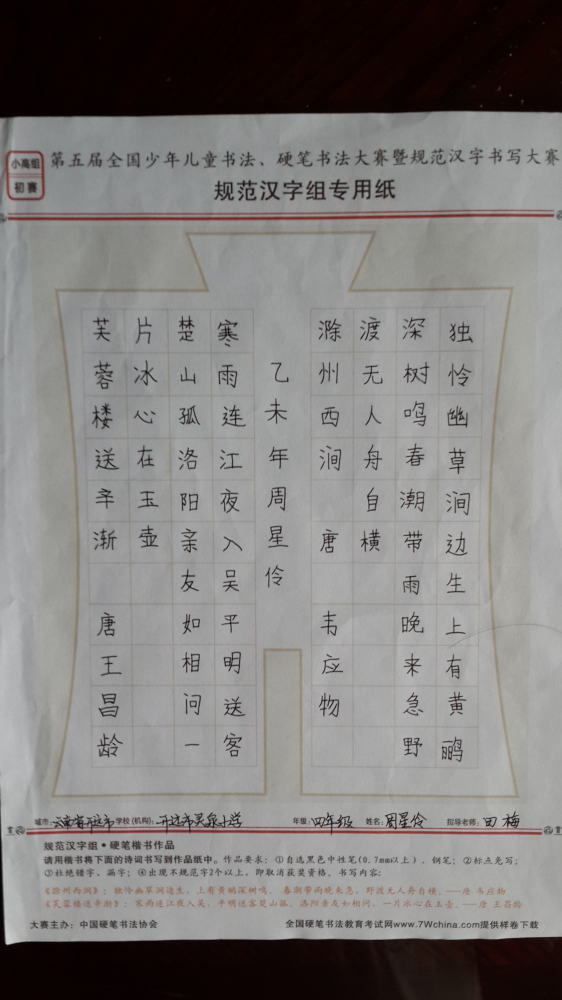 小高组
初赛
第五届全国少年儿童书法、硬笔书法大赛暨规范汉字书写大赛
规范汉字组专用纸
独怜幽草涧边生上有黄鹂
深树鸣春潮带雨晚来急野
渡无人舟自横
滁州西涧 唐 韦应物
乙未年周星伶
寒雨连江夜入吴平明送客
楚山孤洛阳亲友如相问一
片冰心在玉壶
芙蓉楼送辛渐 唐 王昌龄
城市:云南省开远市 学校(机构):开远市灵泉小学 年级:四年级 姓名:周星伶 指导老师:田梅
规范汉字组·硬笔楷书作品
请用楷书将下面的诗词书写到作品纸中。作品要求:①自选黑色中性笔(0.7mm以上)、钢笔;②标点免写;
③杜绝错字、漏字;④出现不规范字2个以上,即取消获奖资格。书写内容:
《滁州西涧》:独怜幽草涧边生,上有黄鹂深树鸣。春潮带雨晚来急,野渡无人舟自横。——唐 韦应物
《芙蓉楼送辛渐》:寒雨连江夜入吴,平明送客楚山孤。洛阳亲友如相问,一片冰心在玉壶。——唐 王昌龄
大赛主办:中国硬笔书法协会 全国硬笔书法教育考试网www.7Wchina.com提供样卷下载